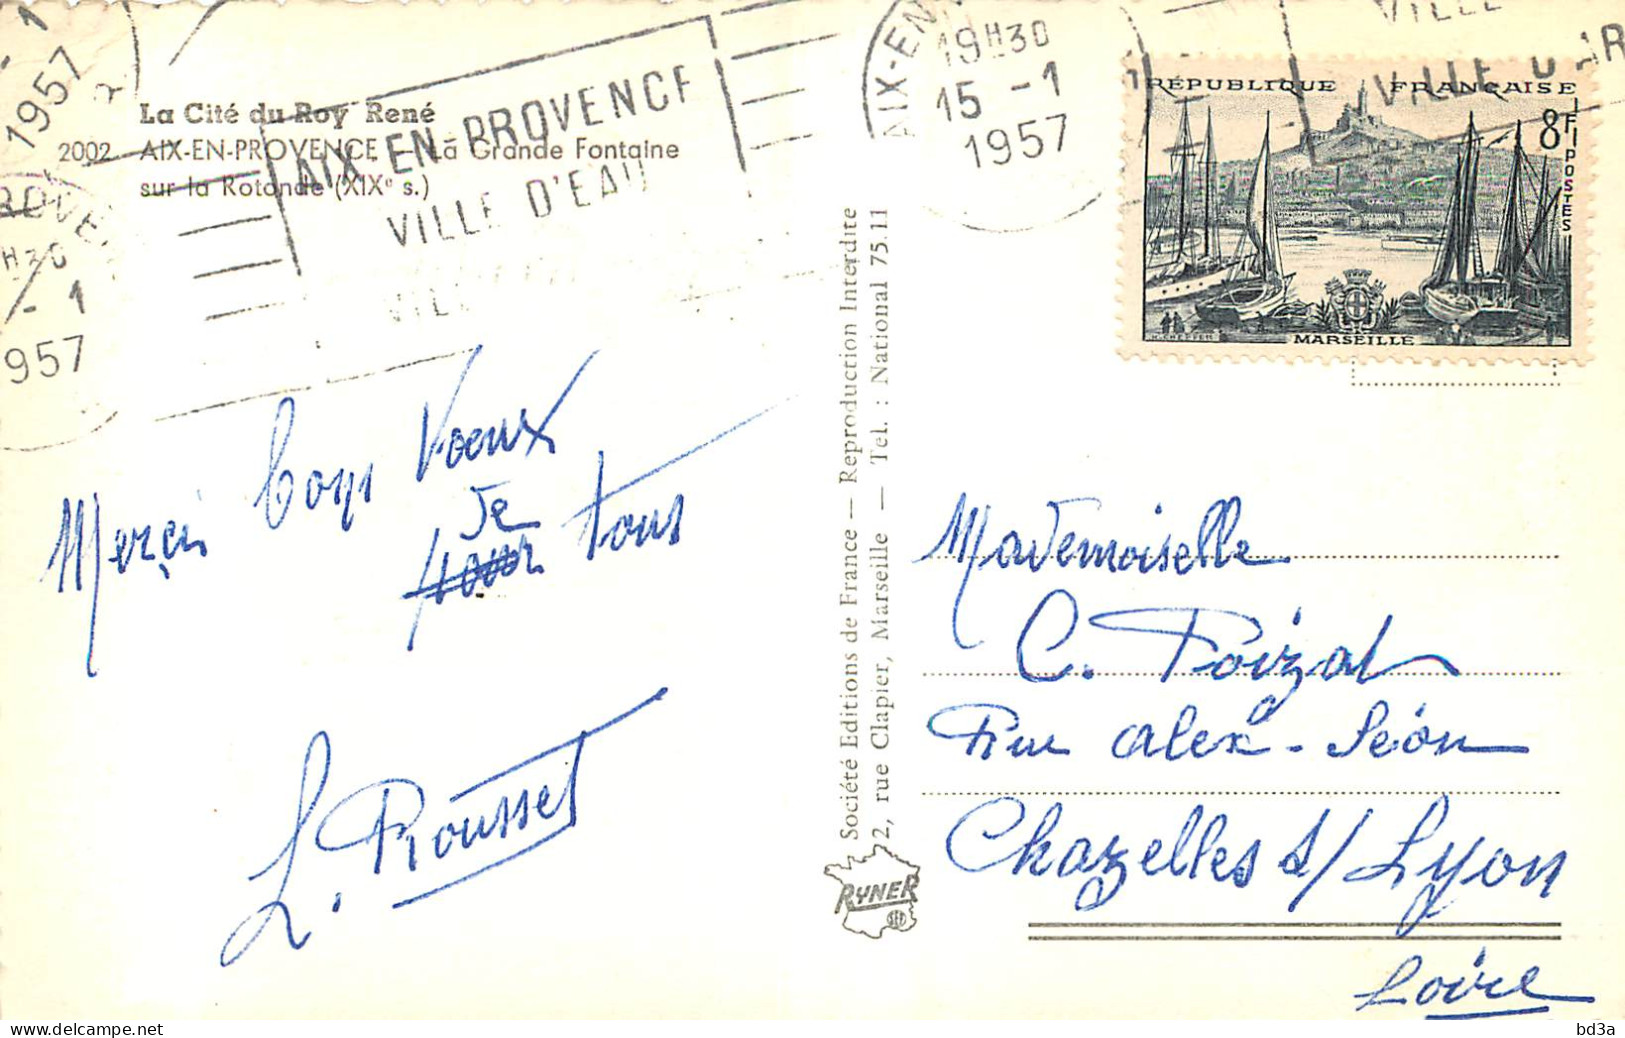 La Cité du Roy René
2002 AIX-EN-PROVENCE - La Grande Fontaine
sur la Rotonde (XIXᵉ s.)
AIX-EN-PROVENCE
VILLE D'EAU
VILLE
1957
1957
AIX-EN
19H30
15 -1
1957
VILLE
VILLE D'AR
RÉPUBLIQUE FRANÇAISE
8F
POSTES
MARSEILLE
Merçi bons Voeux
de
pour tous
L. Rousset
Société Editions de France — Reproduction Interdite
72, rue Clapier, Marseille — Tel. : National 75.11
RYNER
SEF
Mademoiselle
C. Poizat
Rue Alex-Séon
Chazelles s/Lyon
Loire
bd3a